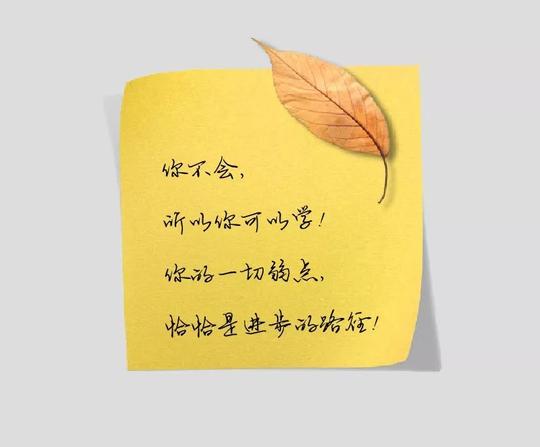 你不会,
所以你可以学!
你的一切弱点,
恰恰是进步的路径!